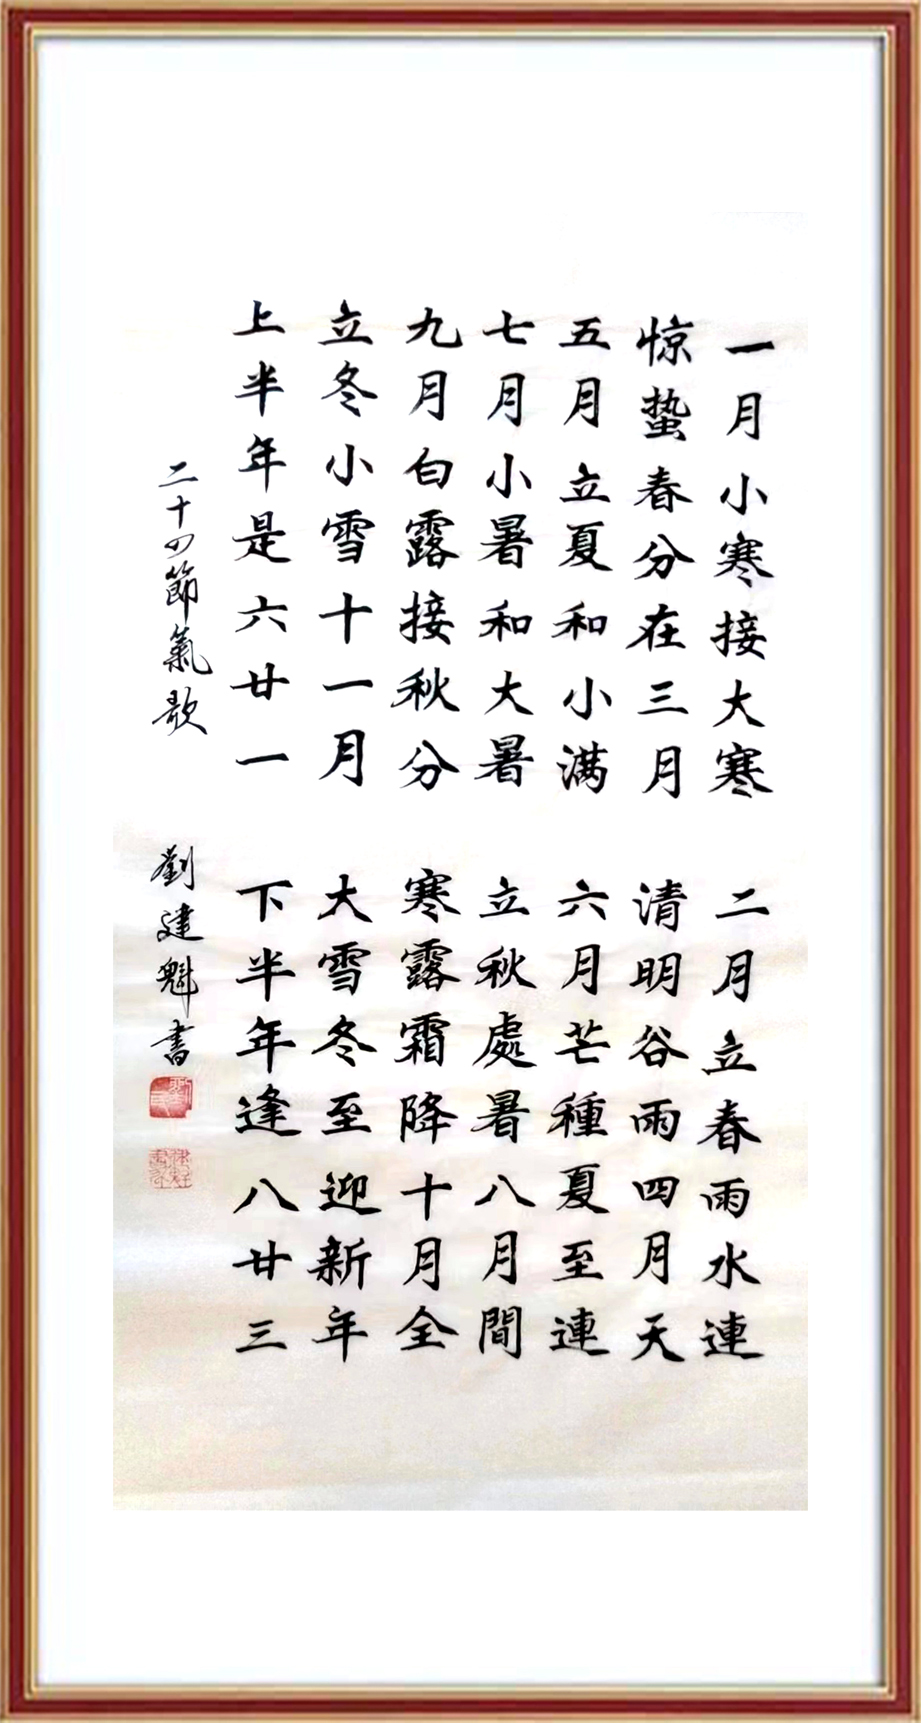 一月小寒接大寒 二月立春雨水連
惊蛰春分在三月 清明谷雨四月天
五月立夏和小满 六月芒種夏至連
七月小暑和大暑 立秋處暑八月間
九月白露接秋分 寒露霜降十月全
立冬小雪十一月 大雪冬至迎新年
上半年是六廿一 下半年逢八廿三
二十四節氣歌 劉建魁書